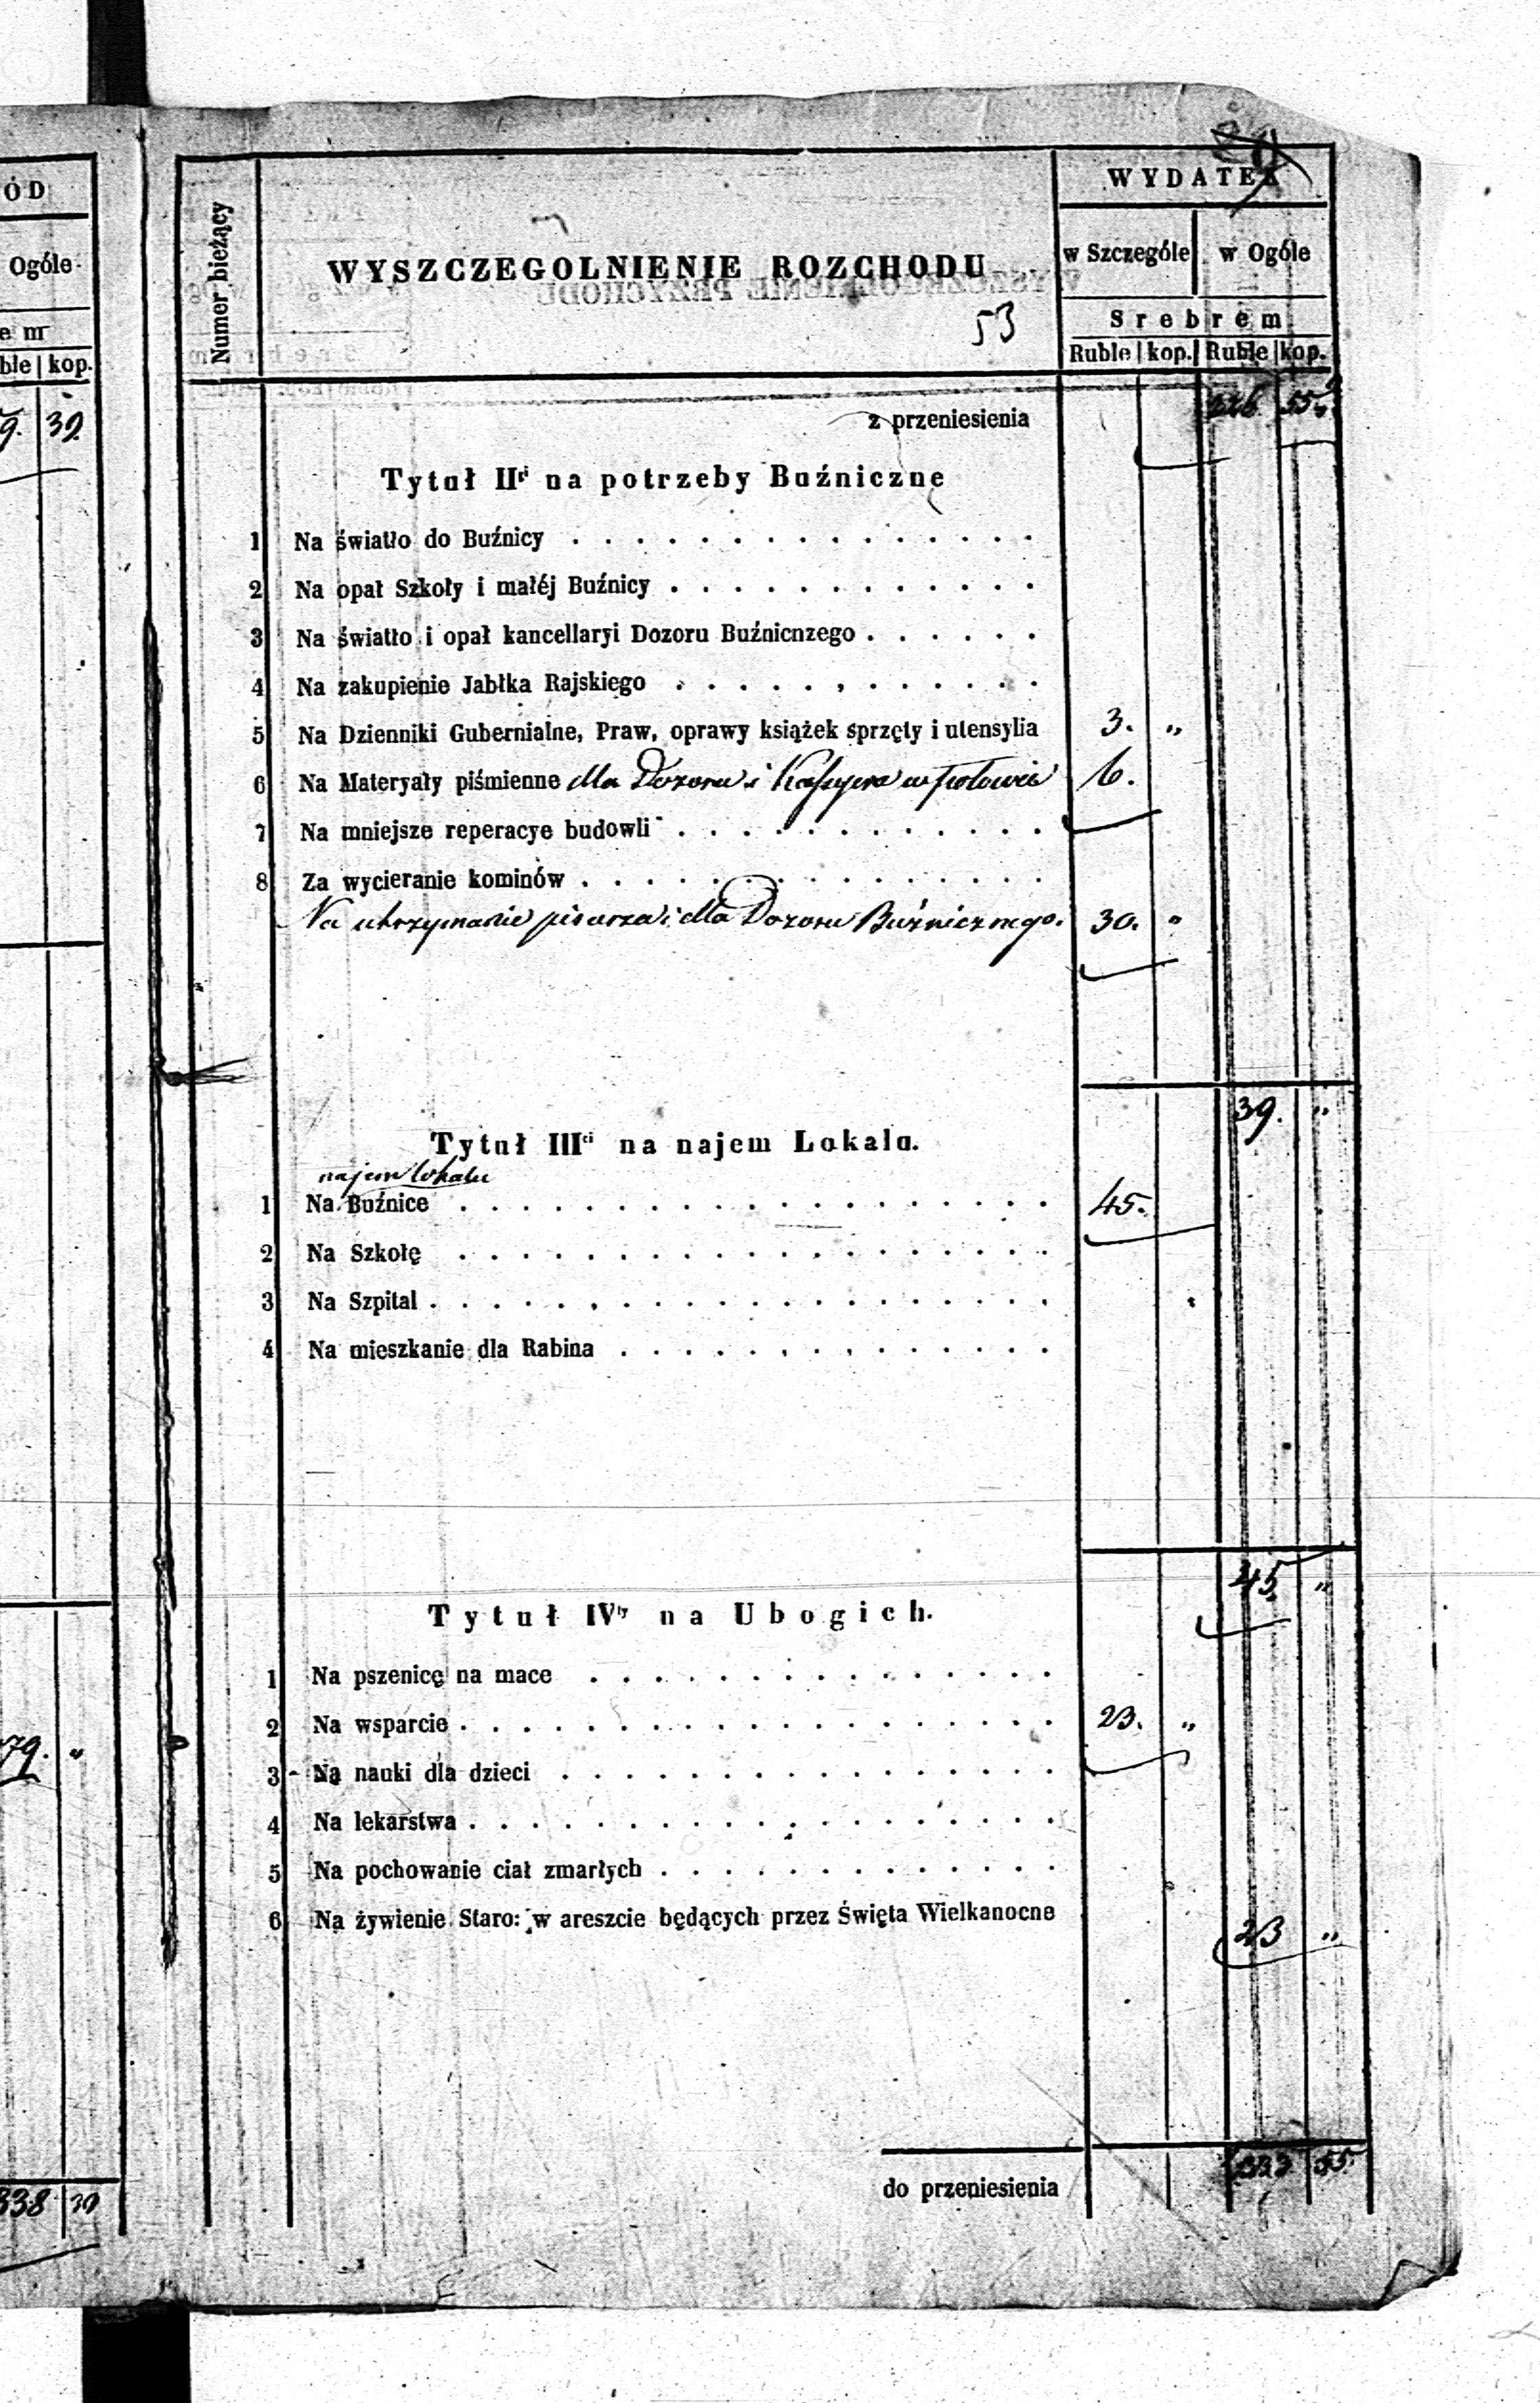 ÓD
Ogóle
em
ble kop.
9. 39.
79. „
338 39
Numer bieżący
WYSZCZEGOLNIENIE ROZCHODU
53
WYDATEK
w Szczególe w Ogóle
Srebrem
Ruble kop. Ruble kop.
z przeniesienia 226. 55
Tytuł IIgi na potrzeby Buźniczne
1 Na światło do Buźnicy
2 Na opał Szkoły i małéj Buźnicy
3 Na światło i opał kancellaryi Dozoru Buźnicnzego
4 Na zakupienie Jabłka Rajskiego
5 Na Dzienniki Gubernialne, Praw, oprawy książek sprzęty i utensylia 3. „
6 Na Materyały piśmienne dla Dozoru i Kassyera w połowie 6.
7 Na mniejsze reperacye budowli
8 Za wycieranie kominów
Na utrzymanie pisarza dla Dozoru Buźnicznego. 30. „
39. „
Tytuł IIIci na najem Lokalu.
najem lokalu
1 Na Buźnice 45.
2 Na Szkołę
3 Na Szpital
4 Na mieszkanie dla Rabina
45 „
Tytuł IVty na Ubogich.
1 Na pszenicę na mace
2 Na wsparcie 23. „
3 Na nauki dla dzieci
4 Na lekarstwa
5 Na pochowanie ciał zmarłych
6 Na żywienie Staro: w areszcie będących przez Święta Wielkanocne
23 „
do przeniesienia 333 55.